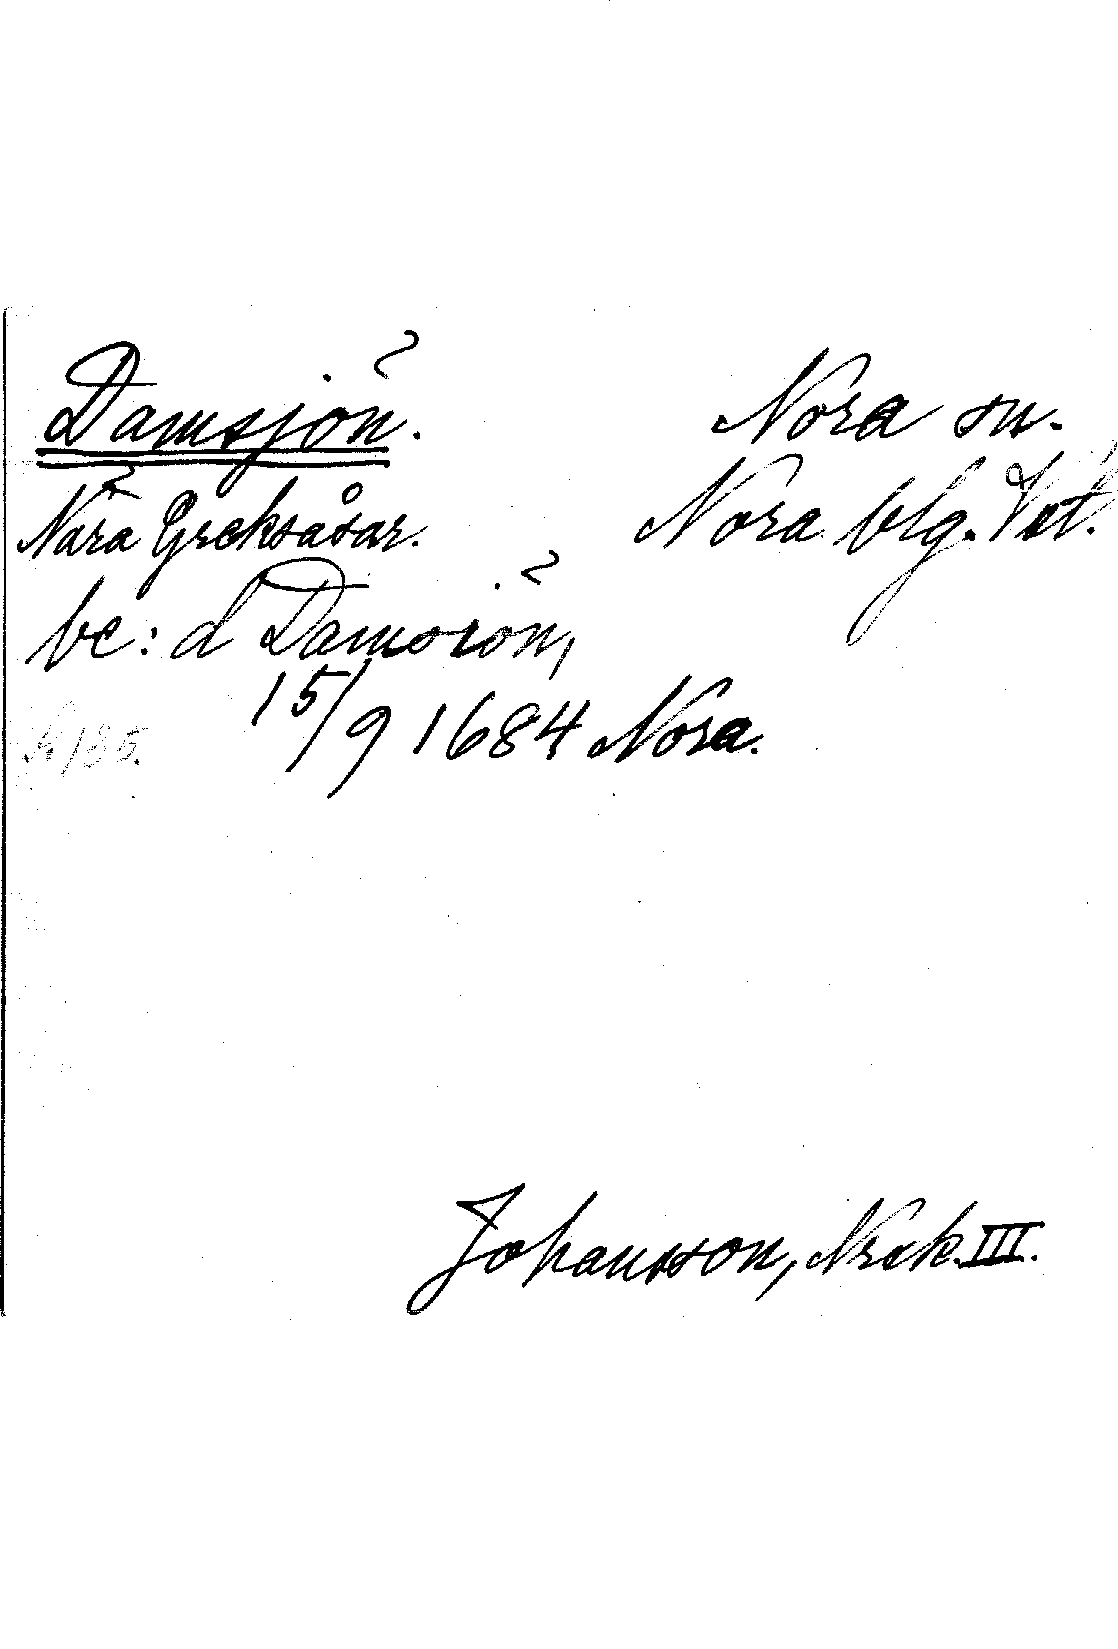 Damsjön.
Nora sn.
Nära Greksåsar.
Nora blg. Vst.
be: d Damsiön,
15/9 1684 Nora.
Johansson, Nrck. III.